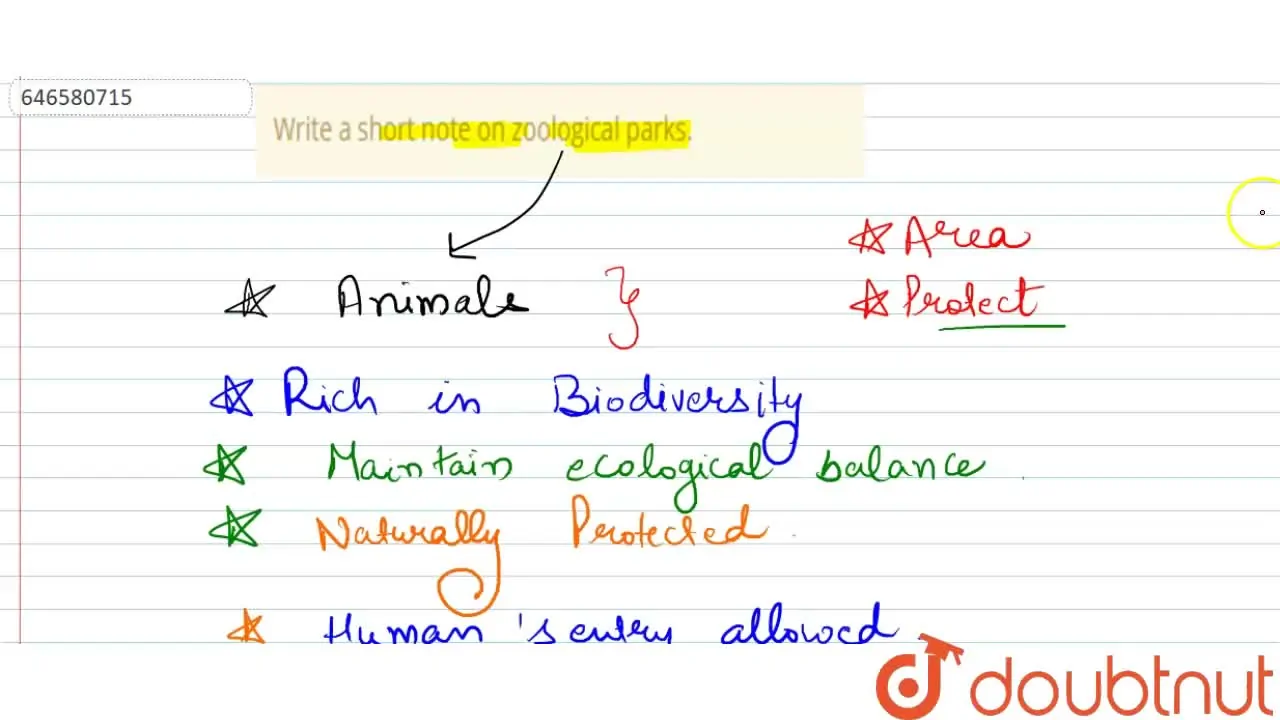 646580715
Write a short note on zoological parks.
☆ Area
☆ Animals }
☆ Protect
☆ Rich in Biodiversity
☆ Maintain ecological balance
☆ Naturally Protected
☆ Human's entry allowed
doubtnut